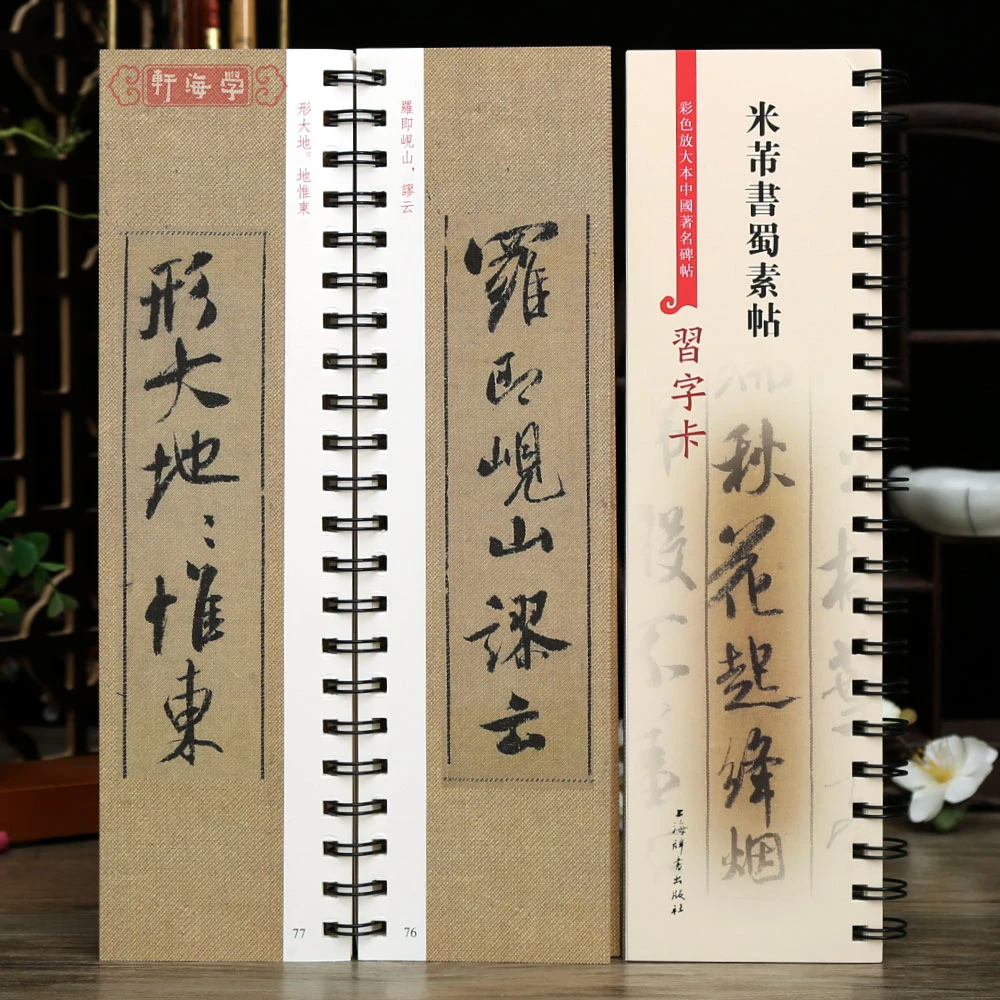 學海軒
羅即峴山，謬云
羅即峴山謬云
76
形大地。地惟東
形大地〻惟東
77
彩色放大本中國著名碑帖
米芾書蜀素帖
習字卡
秋花起絳烟
上海辞书出版社